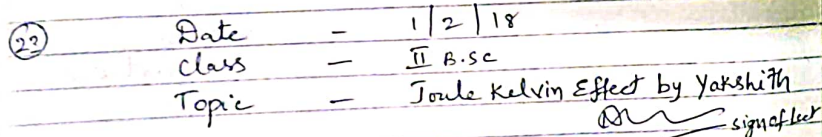 22 Date - 1/2/18
Class - II B.Sc
Topic - Joule Kelvin Effect by Yakshith
sign of lect